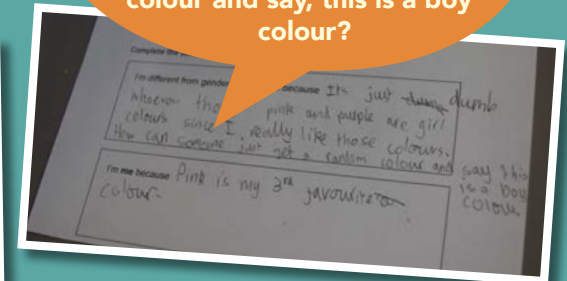 colour and say, this is a boy
colour?
Complete the
I'm different from gender because Its just dumb
whoever pink and purple are girl
colours since I really like those colours.
How can someone just get a random colour and say this
is a boy
colour
I'm me because Pink is my 3rd favourite
colour.